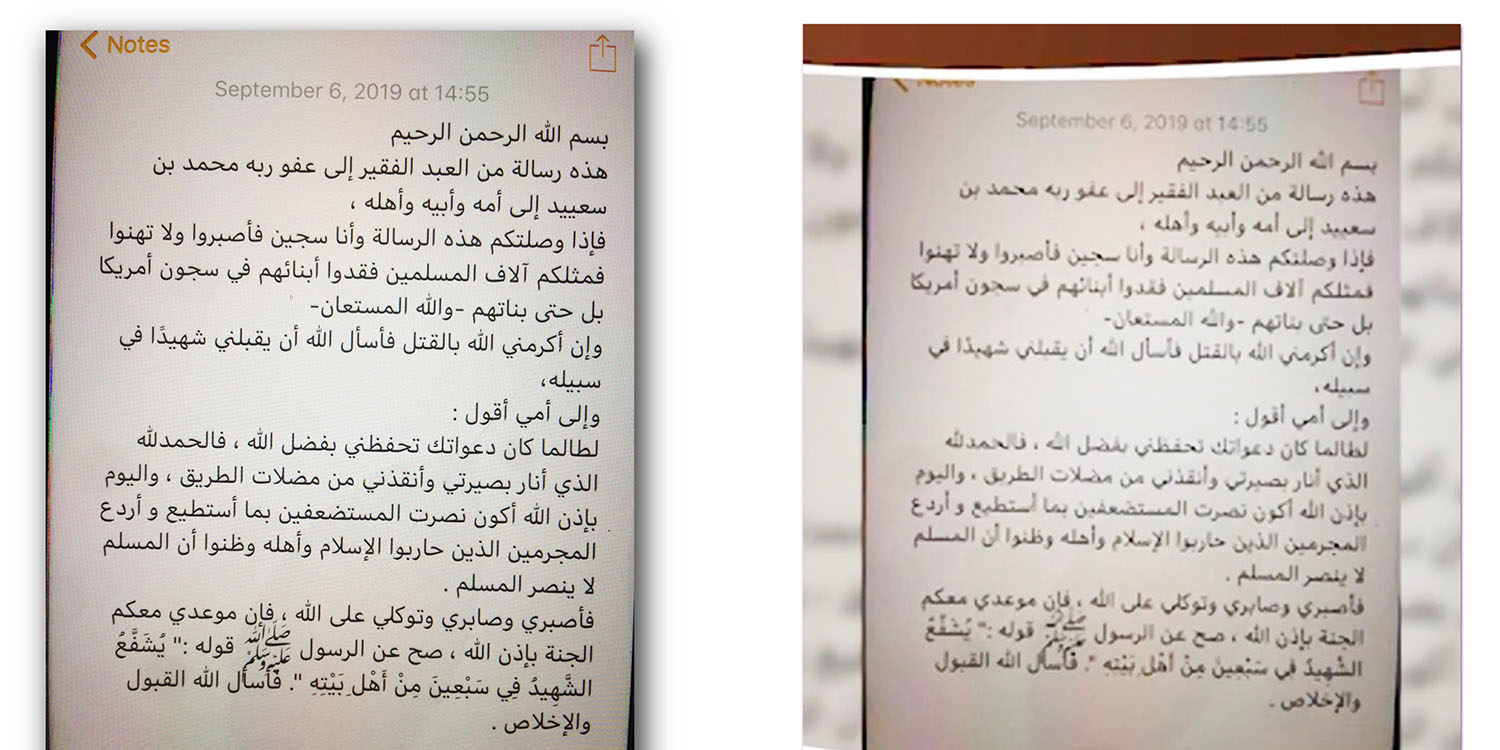 Notes
September 6, 2019 at 14:55
بسم الله الرحمن الرحيم
هذه رسالة من العبد الفقير إلى عفو ربه محمد بن
سعييد إلى أمه وأبيه وأهله ،
فإذا وصلتكم هذه الرسالة وأنا سجين فأصبروا ولا تهنوا
فمثلكم آلاف المسلمين فقدوا أبنائهم في سجون أمريكا
بل حتى بناتهم -والله المستعان-
وإن أكرمني الله بالقتل فأسأل الله أن يقبلني شهيدًا في
سبيله،
وإلى أمي أقول :
لطالما كان دعواتك تحفظني بفضل الله ، فالحمدلله
الذي أنار بصيرتي وأنقذني من مضلات الطريق ، واليوم
بإذن الله أكون نصرت المستضعفين بما أستطيع و أردع
المجرمين الذين حاربوا الإسلام وأهله وظنوا أن المسلم
لا ينصر المسلم .
فأصبري وصابري وتوكلي على الله ، فإن موعدي معكم
الجنة بإذن الله ، صح عن الرسول ﷺ قوله :" يُشَفَّعُ
الشَّهِيدُ فِي سَبْعِينَ مِنْ أَهْلِ بَيْتِهِ ". فأسأل الله القبول
والإخلاص .
Notes
September 6, 2019 at 14:55
بسم الله الرحمن الرحيم
هذه رسالة من العبد الفقير إلى عفو ربه محمد بن
سعييد إلى أمه وأبيه وأهله ،
فإذا وصلتكم هذه الرسالة وأنا سجين فأصبروا ولا تهنوا
فمثلكم آلاف المسلمين فقدوا أبنائهم في سجون أمريكا
بل حتى بناتهم -والله المستعان-
وإن أكرمني الله بالقتل فأسأل الله أن يقبلني شهيدًا في
سبيله،
وإلى أمي أقول :
لطالما كان دعواتك تحفظني بفضل الله ، فالحمدلله
الذي أنار بصيرتي وأنقذني من مضلات الطريق ، واليوم
بإذن الله أكون نصرت المستضعفين بما أستطيع و أردع
المجرمين الذين حاربوا الإسلام وأهله وظنوا أن المسلم
لا ينصر المسلم .
فأصبري وصابري وتوكلي على الله ، فإن موعدي معكم
الجنة بإذن الله ، صح عن الرسول ﷺ قوله :" يُشَفَّعُ
الشَّهِيدُ فِي سَبْعِينَ مِنْ أَهْلِ بَيْتِهِ ". فأسأل الله القبول
والإخلاص .